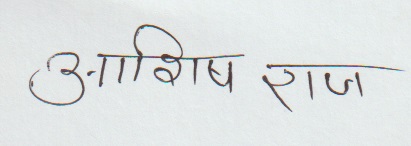 आशिष राज